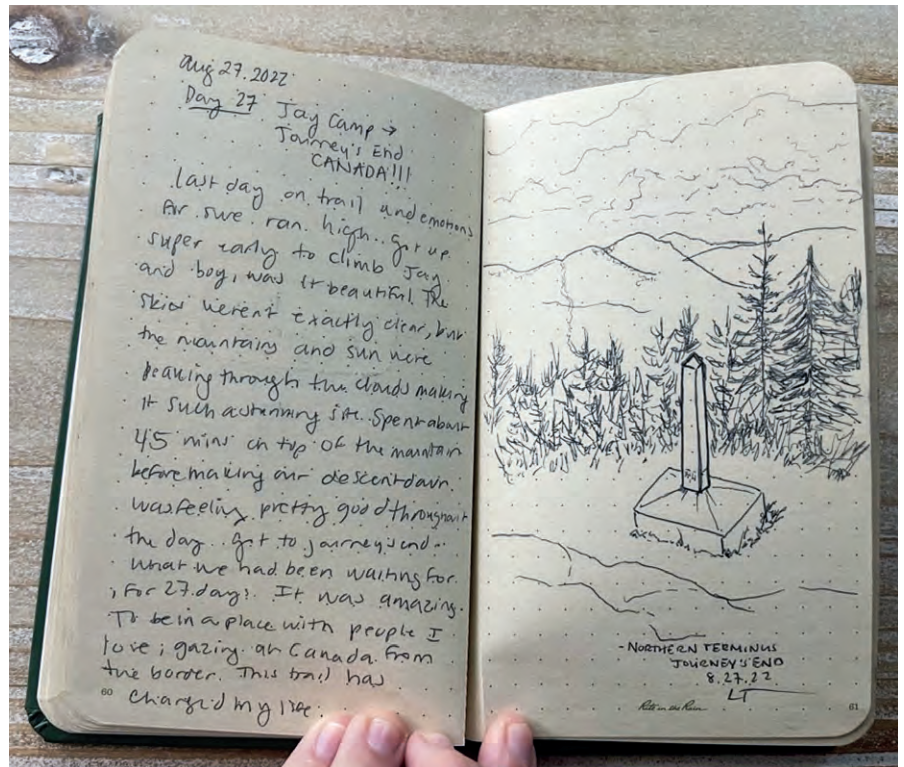 Aug 27.2022
Day 27 Jay Camp →
Journey's End
CANADA!!!
last day on trail and emotions
for sure ran high.. got up
super early to climb Jay
and boy, was it beautiful. The
skies weren't exactly clear, but
the mountains and sun were
peaking through the clouds making
it such a stunning site. Spent about
45 mins on top of the mountain
before making our descent down.
was feeling pretty good throughout
the day.. got to journey's end..
what we had been waiting for
, for 27 days. It was amazing.
To be in a place with people I
love ; gazing at Canada from
the border. This trail has
changed my life.
60
- NORTHERN TERMINUS
JOURNEY'S END
8.27.22
LT
Rite in the Rain
61